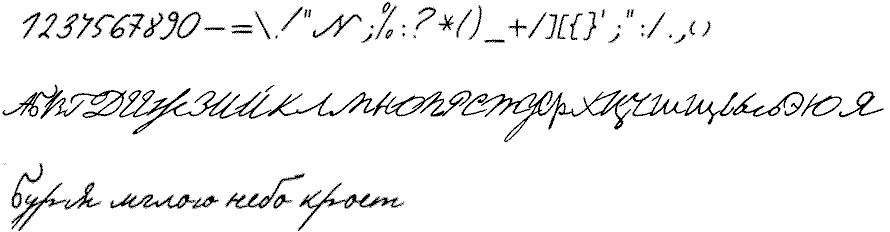 1234567890-=\!/"№;%:?*()_+/][{}';":/.,<>
АБВГДЕЖЗИЙКЛМНОПРСТУФХЦЧШЩЬЫЪЭЮЯ
Буря мглою небо кроет